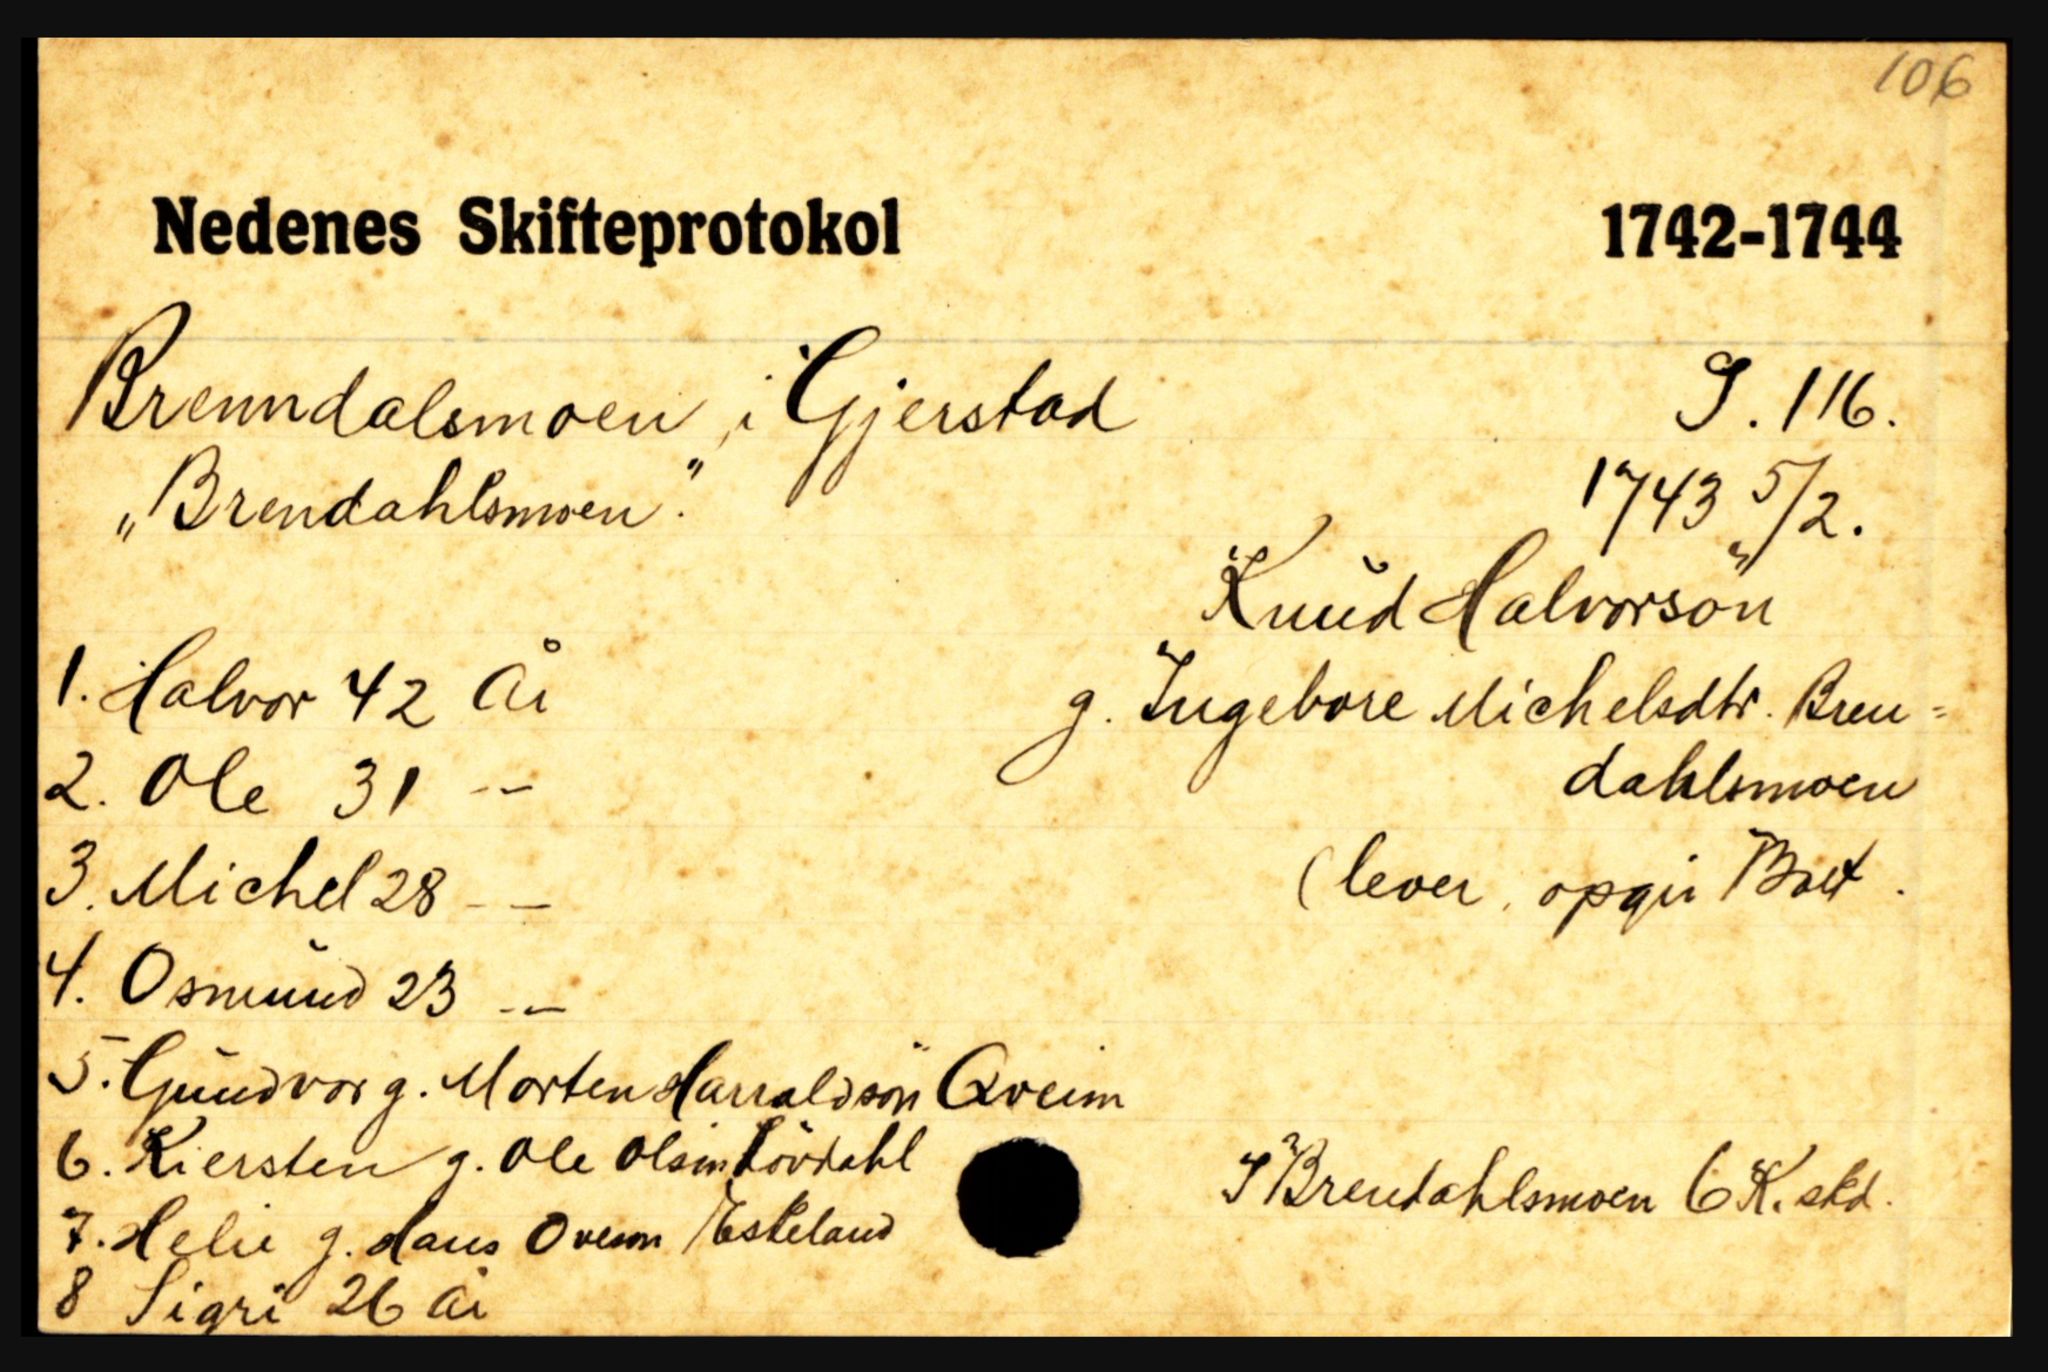 106
Nedenes Skifteprotokol 1742-1744
Brenndalsmoen, i Gjerstad S. 116.
„Brendahlsmoen". 1743 5/2.
Knud Halvorsön
1. Halvor 42 År g. Ingebore Michelsdtr. Bren=
2. Ole 31 -- dahlsmoen
3. Michel 28 -- (lever, opgir Boet.
4. Osmund 23 --
5. Gundvor g. Morten Harraldsön Qveim
6. Kiersten g. Ole Olsen Lövdahl I Brendahlsmoen 6 K. skd.
7. Helie g. Hans Oveson Eskeland
8 Sigri 26 År